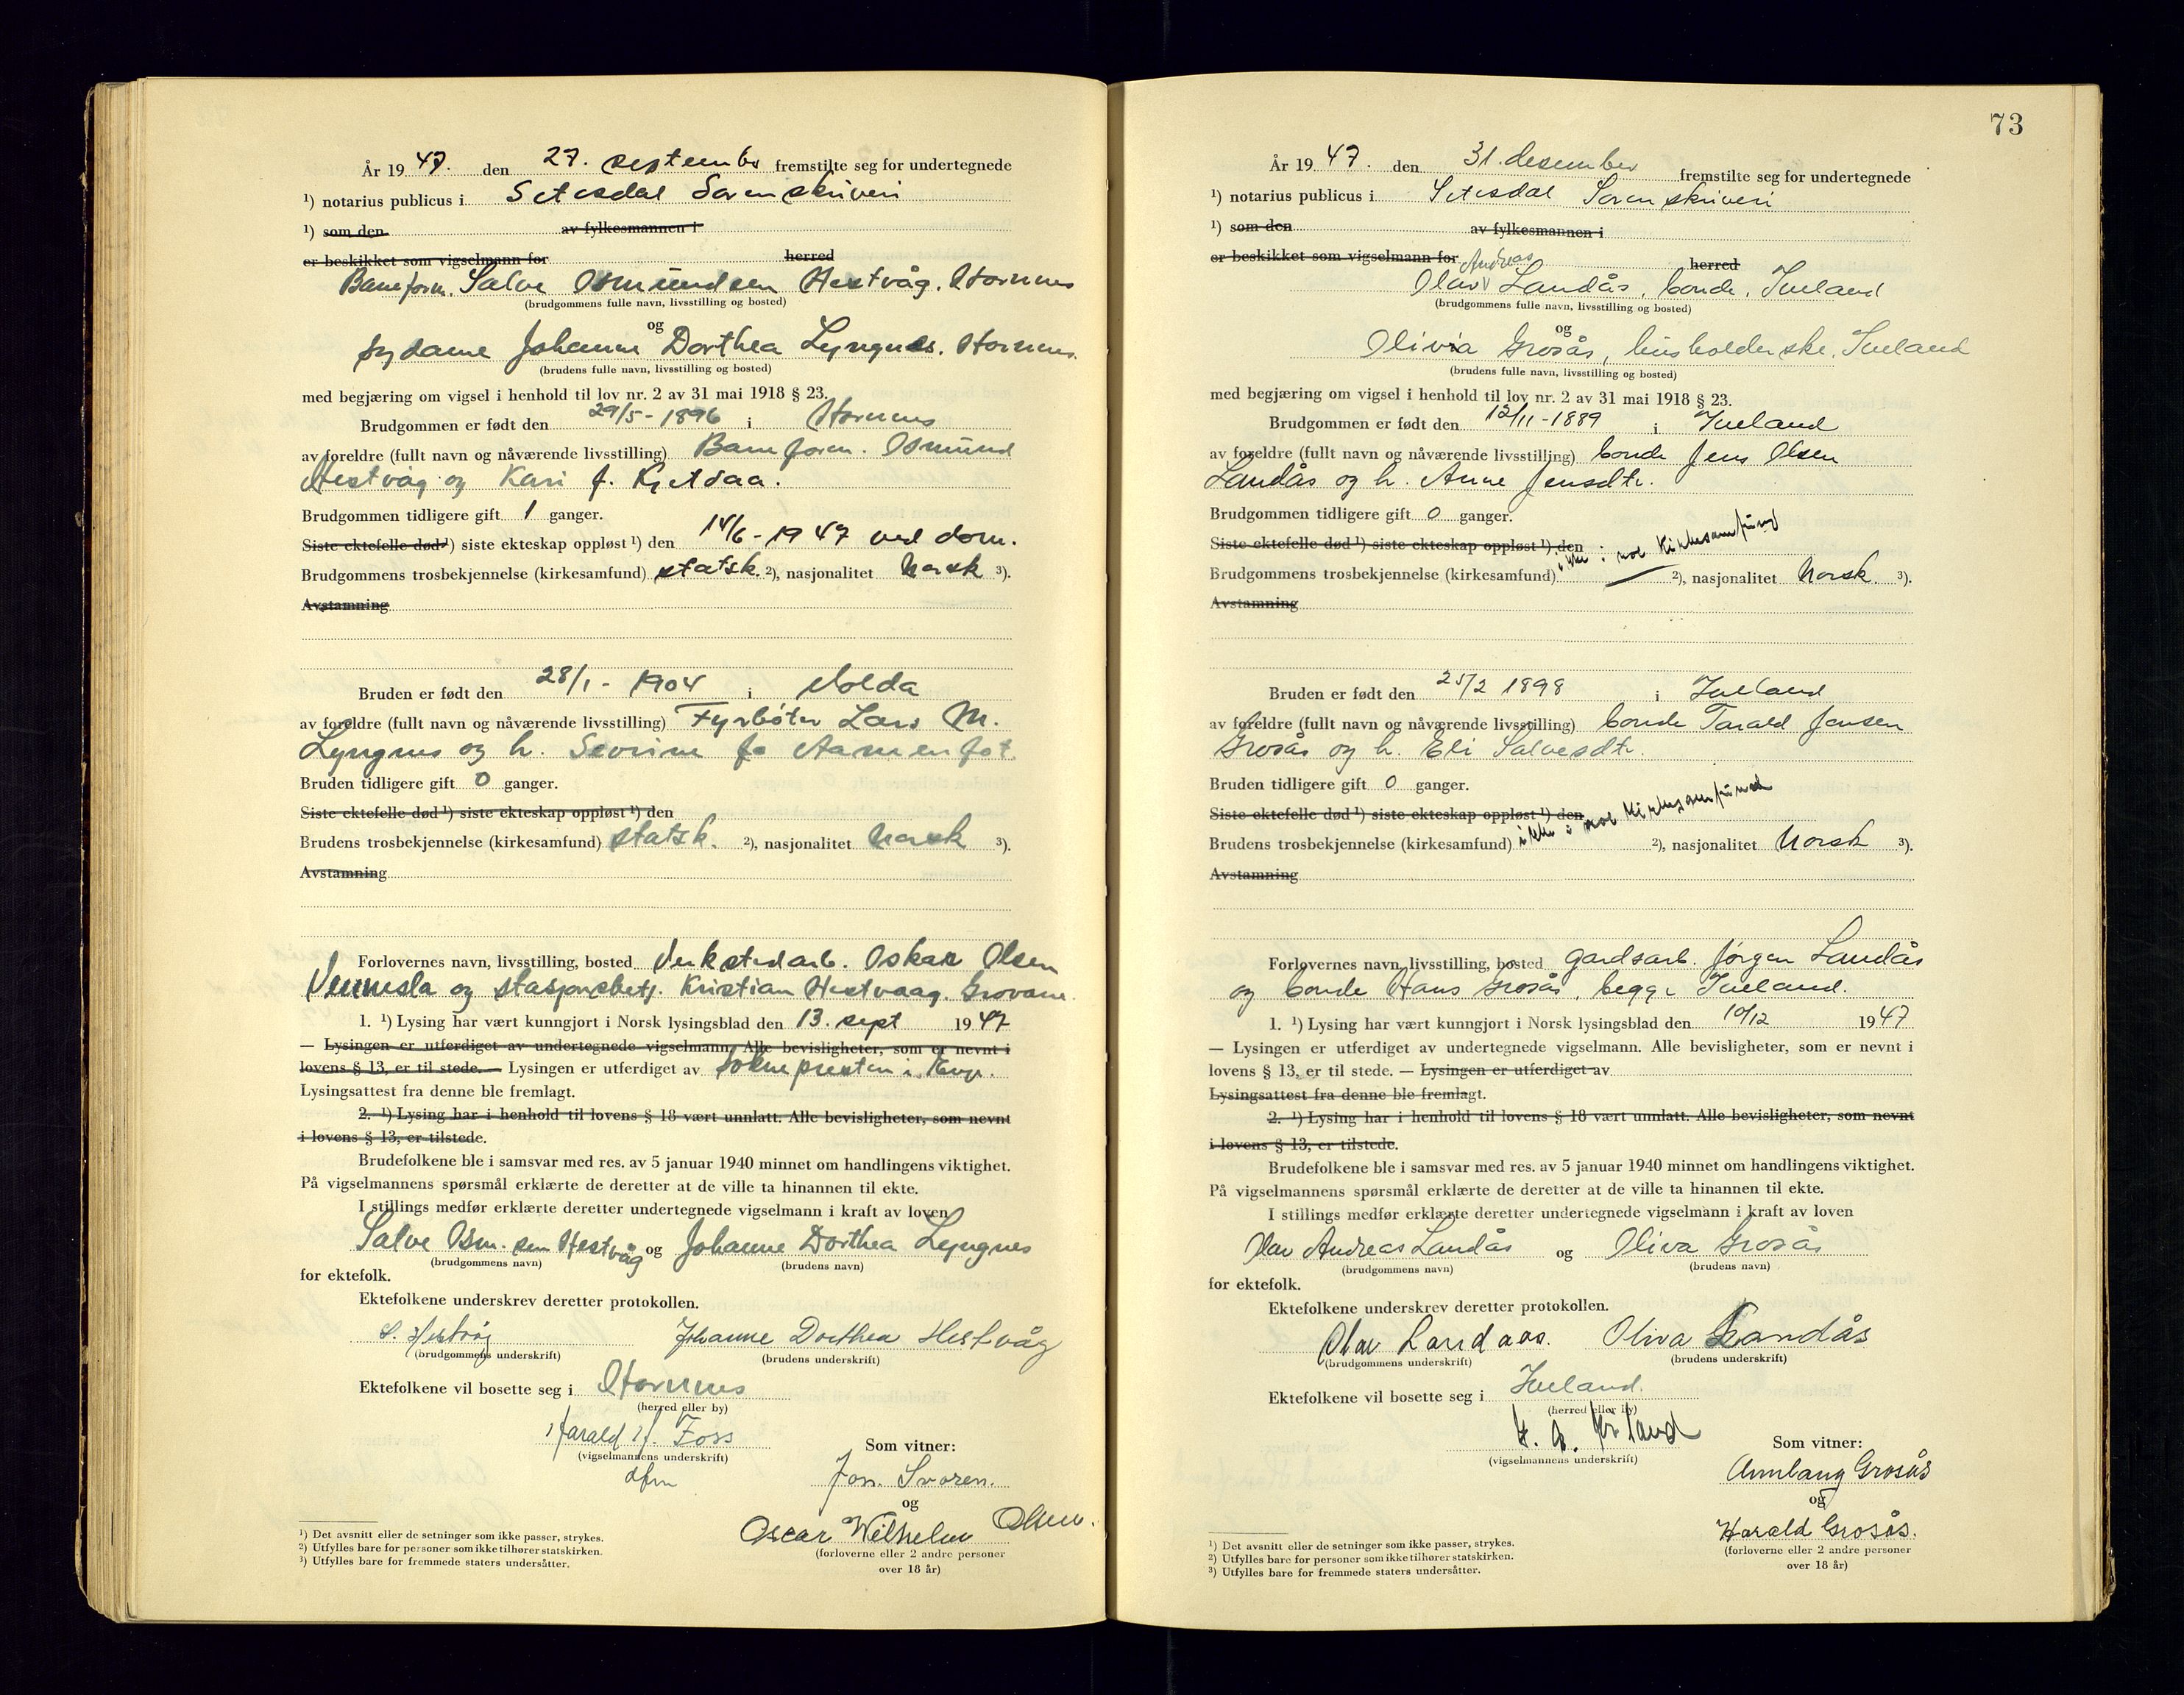 År 19 47. den 27. septembr fremstilte seg for undertegnede
¹) notarius publicus i Setesdal Sorenskriveri
¹) som den av fylkesmannen i
er beskikket som vigselmann for herred
Baneform. Salve Osmundsen Hestvåg. Hornnes
(brudgommens fulle navn, livsstilling og bosted)
og
sydame Johanne Dorthea Lyngnes. Hornnes.
(brudens fulle navn, livsstilling og bosted)
med begjæring om vigsel i henhold til lov nr. 2 av 31 mai 1918 § 23.
Brudgommen er født den 29/5 - 1896 i Hornnes
av foreldre (fullt navn og nåværende livsstilling) Baneform. Osmund
Hestvåg og Kari f. Kjetsaa.
Brudgommen tidligere gift 1 ganger.
Siste ektefelle død ¹) siste ekteskap oppløst ¹) den 14/6 - 1947 ved dom.
Brudgommens trosbekjennelse (kirkesamfund) statsk. ²), nasjonalitet Norsk ³).
Avstamning
Bruden er født den 28/1 - 1904 i Molda
av foreldre (fullt navn og nåværende livsstilling) Fyrbøter Lars M.
Lyngnes og h. Sevrine fo Aarnenfot.
Bruden tidligere gift 0 ganger.
Siste ektefelle død ¹) siste ekteskap oppløst ¹) den
Brudens trosbekjennelse (kirkesamfund) statsk. ²), nasjonalitet Norsk ³).
Avstamning
Forlovernes navn, livsstilling, bosted Verkstedarb. Oskar Olsen
Vennesla og stasjonsbetj. Kristian Hestvaag. Grovane.
1. ¹) Lysing har vært kunngjort i Norsk lysingsblad den 13. sept 1947
— Lysingen er utferdiget av undertegnede vigselmann. Alle bevisligheter, som er nevnt i
lovens § 13, er til stede. — Lysingen er utferdiget av Soknepresten i Evje.
Lysingsattest fra denne ble fremlagt.
2. ¹) Lysing har i henhold til lovens § 18 vært unnlatt. Alle bevisligheter, som nevnt
i lovens § 13, er tilstede.
Brudefolkene ble i samsvar med res. av 5 januar 1940 minnet om handlingens viktighet.
På vigselmannens spørsmål erklærte de deretter at de ville ta hinannen til ekte.
I stillings medfør erklærte deretter undertegnede vigselmann i kraft av loven
Salve Osm.sen Hestvåg og Johanne Dorthea Lyngnes
(brudgommens navn) (brudens navn)
for ektefolk.
Ektefolkene underskrev deretter protokollen.
S. Hestvåg Johanne Dorthea Hestvåg
(brudgommens underskrift) (brudens underskrift)
Ektefolkene vil bosette seg i Hornnes
(herred eller by)
Harald H. Foss
(vigselmannens underskrift)
dfm
Som vitner:
Jon. Svoren.
og
Oscar Wilhelm Olsen.
(forloverne eller 2 andre personer
over 18 år)
¹) Det avsnitt eller de setninger som ikke passer, strykes.
²) Utfylles bare for personer som ikke tilhører statskirken.
³) Utfylles bare for fremmede staters undersåtter.
73
År 19 47. den 31. desember fremstilte seg for undertegnede
¹) notarius publicus i Setesdal Sorenskriveri
¹) som den av fylkesmannen i
er beskikket som vigselmann for herred
Andreas
Olav Landås, bonde, Iveland
(brudgommens fulle navn, livsstilling og bosted)
og
Olivia Grosås, husholderske, Iveland
(brudens fulle navn, livsstilling og bosted)
med begjæring om vigsel i henhold til lov nr. 2 av 31 mai 1918 § 23.
Brudgommen er født den 12/11 - 1889 i Iveland
av foreldre (fullt navn og nåværende livsstilling) bonde Jens Olsen
Landås og h. Anne Jensdtr.
Brudgommen tidligere gift 0 ganger.
Siste ektefelle død ¹) siste ekteskap oppløst ¹) den
ikke i noe kirkesamfund
Brudgommens trosbekjennelse (kirkesamfund) — ²), nasjonalitet Norsk ³).
Avstamning
Bruden er født den 25/2 1898 i Iveland
av foreldre (fullt navn og nåværende livsstilling) bonde Tarald Jensen
Grosås og h. Eli Salvesdtr.
Bruden tidligere gift 0 ganger.
Siste ektefelle død ¹) siste ekteskap oppløst ¹) den
ikke i noe kirkesamfund
Brudens trosbekjennelse (kirkesamfund) ²), nasjonalitet Norsk ³).
Avstamning
Forlovernes navn, livsstilling, bosted gardsarb. Jørgen Landås
og bonde Hans Grosås, begge Iveland.
1. ¹) Lysing har vært kunngjort i Norsk lysingsblad den 10/12 1947
— Lysingen er utferdiget av undertegnede vigselmann. Alle bevisligheter, som er nevnt i
lovens § 13, er til stede. — Lysingen er utferdiget av
Lysingsattest fra denne ble fremlagt.
2. ¹) Lysing har i henhold til lovens § 18 vært unnlatt. Alle bevisligheter, som nevnt
i lovens § 13, er tilstede.
Brudefolkene ble i samsvar med res. av 5 januar 1940 minnet om handlingens viktighet.
På vigselmannens spørsmål erklærte de deretter at de ville ta hinannen til ekte.
I stillings medfør erklærte deretter undertegnede vigselmann i kraft av loven
Olav Andreas Landås og Oliva Grosås
(brudgommens navn) (brudens navn)
for ektefolk.
Ektefolkene underskrev deretter protokollen.
Olav Landaas. Oliva Landås
(brudgommens underskrift) (brudens underskrift)
Ektefolkene vil bosette seg i Iveland.
(herred eller by)
(vigselmannens underskrift)
Som vitner:
Annlaug Grosås
og
Harald Grosås.
(forloverne eller 2 andre personer
over 18 år)
¹) Det avsnitt eller de setninger som ikke passer, strykes.
²) Utfylles bare for personer som ikke tilhører statskirken.
³) Utfylles bare for fremmede staters undersåtter.